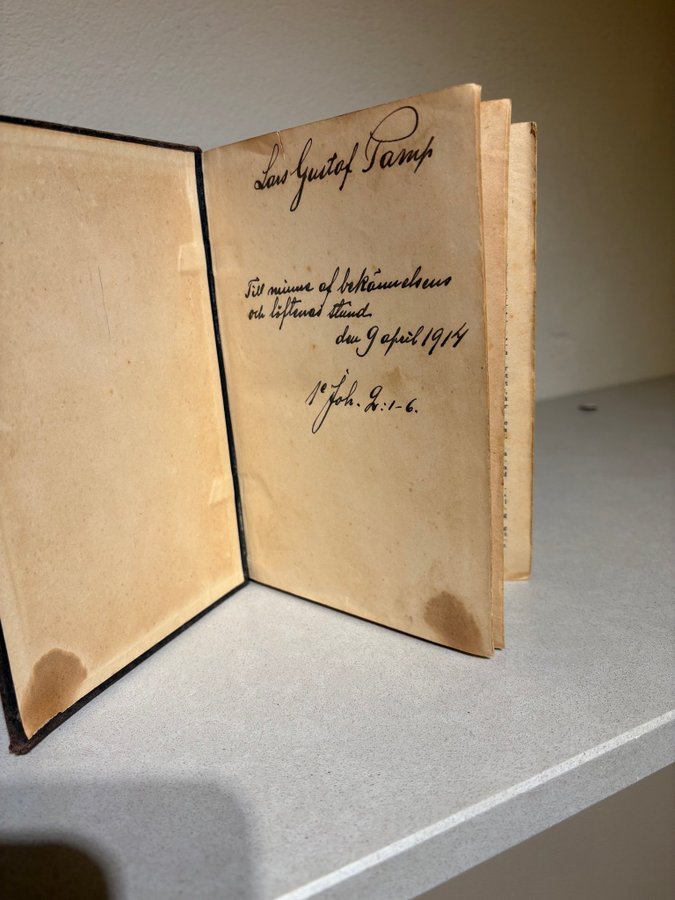 Lars Gustof Pamp
Till minne af bekännelsens
och löftenas stund
den 9 april 1914
1e Joh. 2:1-6.